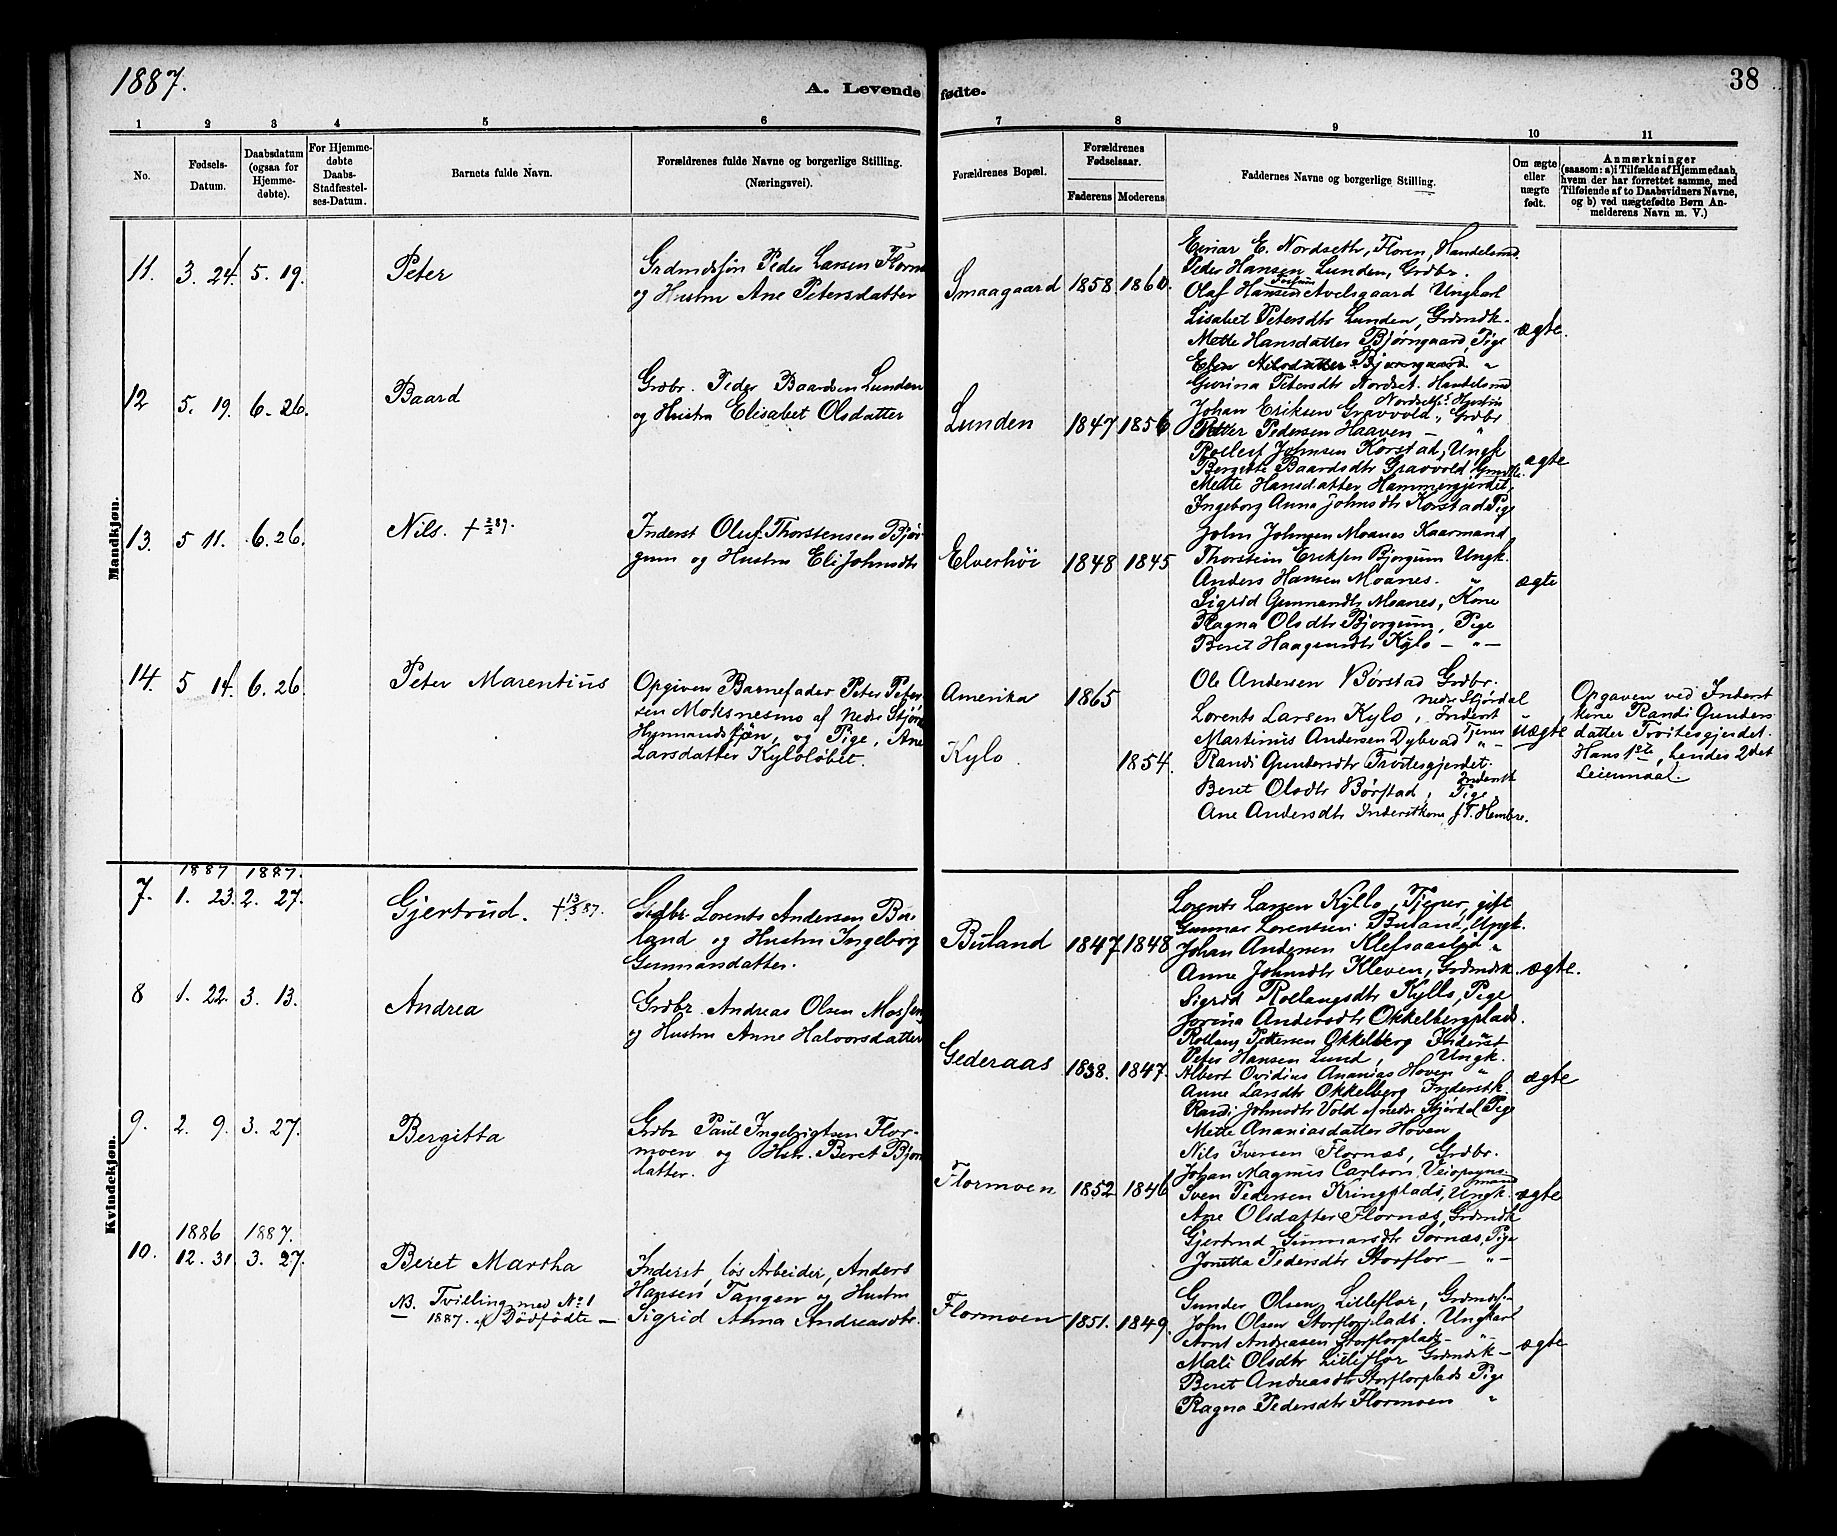 1887.
A. Levende fødte.
38
1 2 3 4 5 6 7 8 9 10 11
No.
Fødsels-Datum.
Daabsdatum (ogsaa for Hjemmedøbte).
For Hjemmedøbte Daabs-Stadfæstelses-Datum.
Barnets fulde Navn.
Forældrenes fulde Navne og borgerlige Stilling. (Næringsvei).
Forældrenes Bopæl.
Forældrenes Fødselsaar.
Faderens Moderens
Faddernes Navne og borgerlige Stilling.
Om ægte eller uægte født.
Anmærkninger
(saasom: a) i Tilfælde af Hjemmedaab,
hvem der har forrettet samme, med
Tilføiende af to Daabsvidners Navne,
og b) ved uægtefødte Børn An-
melderens Navn m. V.)
Mandkjøn.
11. 3. 24. 5. 19.
Peter
Grdmdsføn Peder Larsen Florm
og Hustru Ane Petersdatter
Smaagaard 1858. 1860.
Einar E. Nordseth, Floren, Handelsmd.
Peder Hansen Lunden, Grdbr.
Olaf Hansen Avelsgaard Ungkarl
Lisabet Petersdtr Lunden, Grdmdk.
Mette Hansdatter Bjørngaard, Pige
Elen Nilsdatter Bjørngaard "
Gurina Petersdtr Nordset. Handelsmd
ægte.
12 5. 19. 6. 26.
Baard
Grdbr. Peder Baardsen Lunden
og Hustru Elisabet Olsdatter
Lunden 1847 1856
Nordseths Hustru
Johan Eriksen Gravvold, Grdbr
Petter Pedersen Haaven — "
Rollef Johnsen Korstad, Ungk
Bergitte Baardsdtr Gravvold Grmdk.
Mette Hansdatter Hammergjerdet
Ingeborg Anna Johnsdtr Korstad Pige
ægte
13. 5 11. 6. 26.
Nils. † 2/2 87.
Inderst Oluf Thorstensen Bjør-
gum og Hustru Eli Johnsdtr
Elverhöi 1848 1845
John Johnsen Moanes Kaarmand
Thorstein Eriksen Bjorgum Ungk.
Anders Hansen Moanes. "
Sigrid Gunnarsdtr Moanes, Kone
Ragna Olsdtr Bjorgum, Pige
Beret Haagensdtr Kylo — " —
ægte
14. 5 14. 6. 26.
Peter Marentius
Opgiven Barnefader Peter Peter-
sen Moksnesmo af Nedr Stjørd
Husmandsføn, og Pige, Ane
Larsdatter Kyloløbet.
Amerika 1865
Kylo. 1854.
Ole Andersen Børstad Grdbr.
nedr Stjørdal
Lorents Larsen Kylo, Inderst
Martinus Andersen Dybvad Tjener
Randi Gundersdtr Trøitesgjerdet.
Beret Olsdtr Børstad, Pige
Ane Andersdtr Inderstkone f T. Hembre.
uægte
Opgaven ved Inderst
kone Randi Gunders-
datter Trøitesgjerdet.
Hans 1ste, hendes 2det
Leiermaal.
Kvindekjøn.
1887 1887.
7. 1. 23. 2. 27.
Gjertrud. † 13/3 87.
Grdbr Lorents Andersen Bu-
land og Hustru Ingeborg
Gunnarsdatter.
Buland 1847 1848
Lorents Larsen Kyllo, Tjener, gift
Gunnar Lorentsen Buland, Ungk.
Johan Andersen Klefsaaslid "
Anne Johnsdtr Kleven, Grdmdk.
Sigrid Rollaugsdtr Kyllo, Pige
Jorina Andersdtr Okkelbergplads.
ægte.
8 1. 22. 3. 13.
Andrea
Grdbr. Andreas Olsen Mosfen
og Hustru Anne Halvorsdatter
Gederaas 1838. 1847.
Rollaug Pettersen Okkelberg Inderst
Peter Hansen Lund, Ungk.
Albert Ovidius Ananias Hoven "
Anne Larsdtr Okkelberg Inderstk
Randi Johnsdtr Vold af nedr Stjørdal Pige
Mette Ananiasdatter Hoven
ægte
9. 2. 9. 3. 27.
Bergitta
Grdbr Paul Ingebrigtsen Flor-
moen og Hstr. Beret Bjørn
datter.
Flormoen 1852 1846
Nils Iversen Flornæs, Grdbr.
Johan Magnus Carlson, Veiopsyns-
mand
Sven Pedersen Kringplads, Ungk.
Ane Olsdatter Flornæs, Grdmdk
Gjertrud Gunnarsdtr Sornæs, Pige
Jonetta Pedersdtr Storflor — " —
ægte
1886 1887.
10. 12. 31. 3. 27.
Beret Martha
NB. Tvilling med No 1
1887. af Dödfödte —
Inderst, løs Arbeider, Anders
Hansen Tangen og Hustru
Sigrid Anna Andreasdtr.
Flormoen 1851. 1849.
Gunder Olsen Lilleflor, Grdmdsf.
John Olsen Storflorplads. Ungkarl
Arnt Andreasen Storflorplads — " —
Mali Olsdtr Lilleflor Grdmdsk —
Beret Andreasdtr Storflorplads Pige
Ragna Pedersdtr Flormoen "
ægte